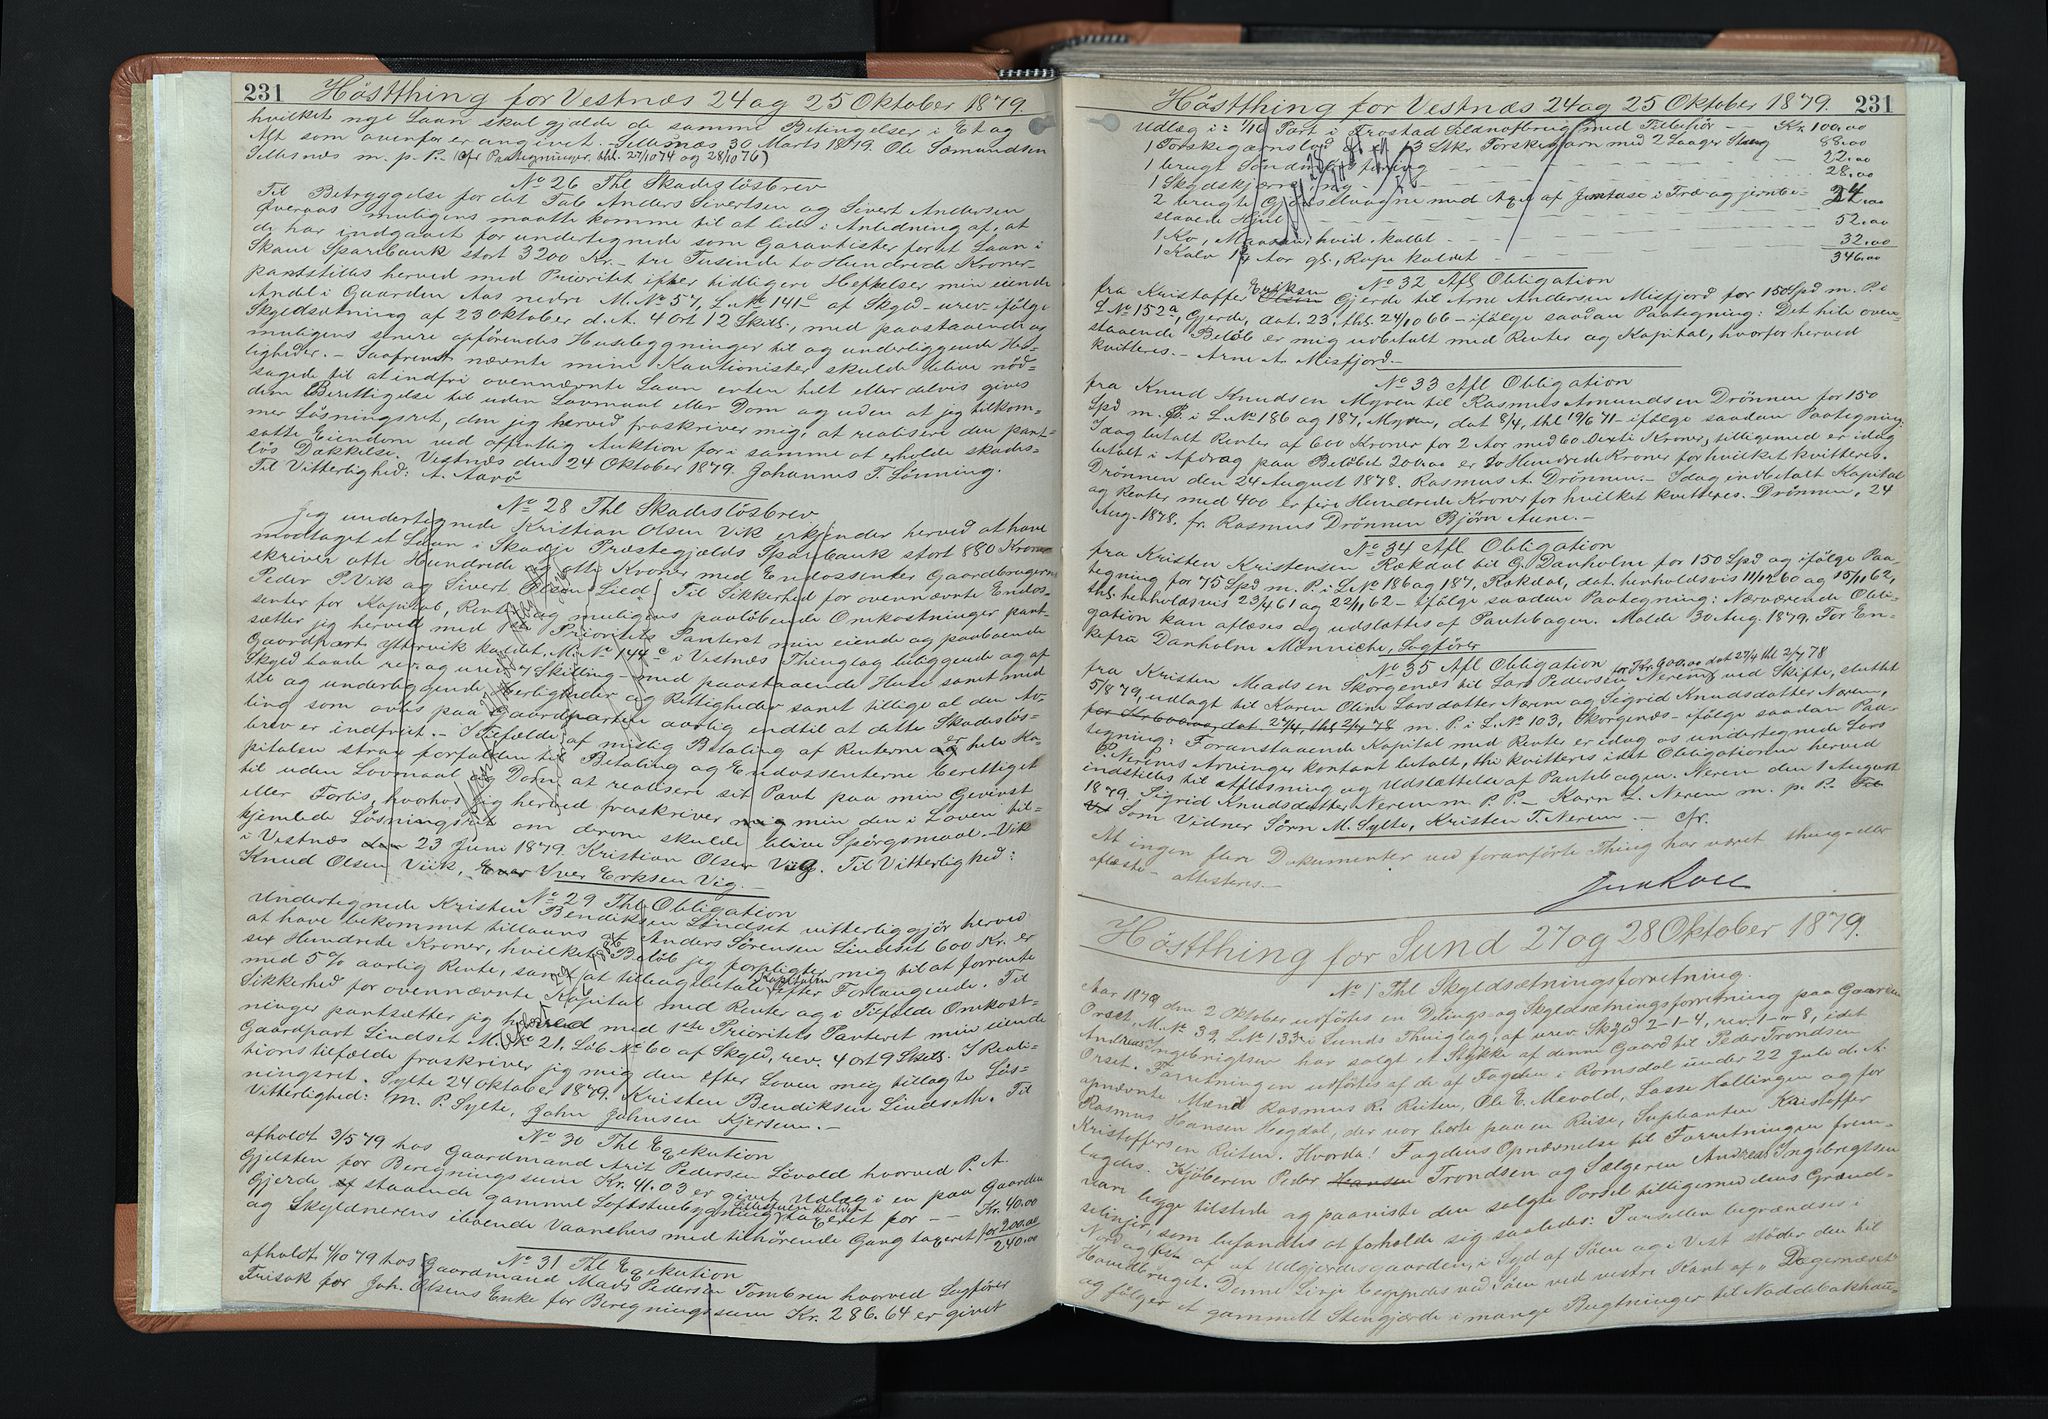 231 Høstthing for Vestnæs 24 og 25 Oktober 1879.
hvilket nye Laan skal gjælde de samme Betingelser i Et og
Alt som ovenfor er angivet. Sellesnæs 30 Marts 1879. Ole Sæmundsen
Sellesnæs m. p. P. (cfr Paategninger, thl. 27/10 74 og 28/10 76)
No 26 Thl Skadesløsbrev
Til Betryggelse for det Tab Anders Sivertsen og Sivert Andersen
Øveraas muligens maatte komme til at lide i Anledning af, at
de har indgaaet for undertegnede som Garantister for et Laan i
Skaue Sparebank stort 3200 Kr. - tre Tusende to Hundrede Kroner -
pantstilles herved med Prioritet efter tidligere Heftelser min eiende
Andel i Gaarden Aas nedre M. No 57, L. No 141c af Skyld - urev. ifølge
Skyldsætning af 23 Oktober d. A. 4 Ort 12 Skill., med paastaaende og
muligens senere opførendes Husebygninger til og underliggende Her-
ligheder. - Saafremt nævnte mine Kautionister skulde blive nød-
sagede til at indfri ovennævnte Laan enten helt eller delvis gives
dem Berettigelse til uden Lovmaal eller Dom og uden at jeg tilkom-
mer Løsningsret, den jeg herved fraskriver mig, at realisere den pant-
satte Eiendom ved offentlig Auktion for i samme at erholde skades-
løs Dækkelse. Vestnæs den 24 Oktober 1879. Johannes T. Lønning.
Til Vitterlighed: A. Aarø
No 28 Thl Skadesløsbrev
Jeg undertegnede Kristian Olsen Vik erkjender herved at have
modtaget et Laan i Skodje Præstegjælds Sparebank stort 880 Kroner
skriver otte Hundrede og otti Kroner med Endossenter Gaardbrugerne
Peder P. Vik og Sivert Olsen Lied. Til Sikkerhed for ovennævnte Endos-
senter for Kapital, Renter og muligens paaløbende Omkostninger pant-
sætter jeg herved med 1ste Prioritets Panteret min eiende og paaboende
Gaardpart Yttervik kaldet, M. No 144c i Vestnæs Thinglag beliggende og af
Skyld baade rev. og urev. 7 Skilling - med paastaaende Huse samt med
til og underliggende Herligheder og Rettigheder samt tillige al den Av-
ling som avles paa Gaardparten aarlig indtil at dette Skadesløs-
brev er indfriet. - I Tilfælde af mislig Betaling af Renterne er hele Ka-
pitalen strax forfalden til Betaling og Endossenterne berettiget
til uden Lovmaal og Dom at realisere sit Pant paa min Gevinst
eller Forlis, hvorhos jeg herved fraskriver mig min den i Loven hil-
hjemlede Løsningsret om derom skulde blive Spørgsmaal. Vik
i Vestnæs 23 Juni 1879. Kristian Olsen Vig. Til Vitterlighed:
Knud Olsen Viik, Iver Erksen Vig. -
No 29 Thl Obligation
Undertegnede Kristen Bendiksen Lindset vitterliggjør herved
at have bekommet tillaans af Anders Sørensen Lindset 600 Kr. er
sex Hundrede Kroner, hvilket Beløb jeg forpligter mig til at forrente
med 5% aarlig Rente, samt at tilbagebetale Kapitalen efter Forlangende. Til
Sikkerhed for ovennævnte Kapital med Renter og i Tilfælde Omkost-
ninger pantsætter jeg herved med 1ste Prioritets Panteret min eiende
Gaardpart Lindset M. No 21, Løb No 60 af Skyld, rev. 4 ort 9 Skill. I Reali-
tionstilfælde fraskriver jeg mig den efter Loven mig tillagte Løs-
ningsret. Sylte 24 Oktober 1879. Kristen Bendiksen Lindseth. Til
Vitterlighed: M. P. Sylte, John Johnsen Kjersem. -
No 30 Thl Exekution
afholdt 3/5 79 hos Gaardmand Arit Pedersen Løvold hvorved P. A.
Gjelsten for Beregningssum Kr. 41.03 er givet Udlæg i en paa Gaarden
Gjerde staaende gammel Loftstuebygning, Lillestuen kaldet taxeret for - - Kr. 40.00
og Skyldnerens iboende Vaanehus med tilhørende Gang taxeret for 200.00
240.00
No 31 Thl Exekution
afholdt 4/10 79 hos Gaardmand Mads Pedersen Tombren hvorved Sagfører
Frisak for Joh. Olsens Enke for Beregningssum Kr. 286.64 er givet
Høstthing for Vestnæs 24 og 25 Oktober 1879. 231
Udlæg i: 1/10 Part i Frostad Sildnotbrug med Tilbehør - Kr. 100.00
1 Torskegarnslod 13 Stkr Torskegarn med 2 Laager Stæng 88.00
1 brugt 22.00
1 Skydskjærre 28.00
2 brugte Gjødselvogne med Axel af Jern i Træ og jernbe-
slaaede Hjul 24.00
1 Ko, hvid - kaldet 52.00
1 Kalv 1½ Aar gl., kaldet 32.00
346.00
No 32 Afl Obligation
fra Kristoffer Eriksen Gjerde til Arne Andersen Misfjord for 150 Spd m. P. i
L No 152a, Gjerde, dat. 23, thl. 24/10 66 - ifølge saadan Paategning: Det hele oven-
staaende Beløb er mig udbetalt med Renter og Kapital, hvorfor herved
kvitteres. - Arne A. Misfjord. -
No 33 Afl Obligation
fra Knud Knudsen Myren til Rasmus Asmundsen Drønnen for 150
Spd m. P. i L. No 186 og 187, Myren, dat 8/4, thl 19/6 71 - ifølge saadan Paategning:
Idag betalt Renter af 600 Kroner for 2 Aar med 60 Sexti Kroner, tilligemed er idag
betalt i Afdrag paa Beløbet 200.00 er To Hundrede Kroner for hvilket kvitteres.
Drønnen den 24 August 1878. Rasmus A. Drønnen. - Idag indbetalt Kapital
og Renter med 400 er fire Hundrede Kroner for hvilket kvitteres. Drønnen, 24
Aug. 1878. fr. Rasmus Drønnen Bjørn Aune. -
No 34 Afl Obligation
fra Kristen Kristensen Rekdal til G. Danholm for 150 Spd og ifølge Paa-
tegning for 75 Spd m. P. i L. No 186 og 187, Rekdal, dat. henholdsvis 11/12 60 og 15/11 62,
thl. henholdsvis 23/4 61 og 22/1 62 - ifølge saadan Paategning: Nærværende Obli-
gation kan aflæses og udslettes af Pantebogen. Molde 30 Aug. 1879. For En-
kefru Danholm Mønniche, Sagfører
No 35 Afl Obligation
for Kr. 900.00 dat 27/4 thl 2/7 78
fra Kristen Madsen Skorgenæs til Lars Pedersen Nerem, ved Skifte, sluttet
5/8 79, udlagt til Karen Oline Larsdatter Nerem og Sigrid Knudsdatter Nerem,
for Kr. 600.00, dat. 27/4, thl. 2/7 78 m. P. i L. No 103, Skorgenæs - ifølge saadan Paa-
tegning: Foranstaaende Kapital med Renter er idag os undertegnede Lars
P. Nerems Arvinger kontant betalt, thi kvitteres idet Obligationen herved
indstilles til Aflæsning og Udslettelse af Pantebogen. Nerem den 1 August
1879. Sigrid Knudsdatter Nerem m. p. P. - Karn L. Nerem m. p. P. Til
Som Vidner Sørn M. Sylte, Kristen T. Nerem. - Cfr.
At ingen flere Dokumenter ved foranførte Thing har været thing- eller
aflæste - attesteres. -
Høstthing for Sund 27 og 28 Oktober 1879.
No 1 Thl Skyldsætningsforretning.
Aar 1879 den 2 Oktober udførtes en Delings- og Skyldsætningsforretning paa Gaarden
Orset, M. No 39, L. No 133 i Sunds Thinglag, af urev. Skyld 2-1-4, rev. 1-"-8, idet
Andreas Ingebrigtsen har solgt et Stykke af denne Gaard til Peder Trondsen
Orset. Forretningen udførtes af de af Fogden i Romsdal under 22 Juli d. A.
opnævnte Mænd Rasmus R. Reiten, Ole E. Mevold, Lasse Hallingen og for
Rasmus Hansen Hegdal, der var borte paa en Reise, Suplianten Kristoffer
Kristoffersen Reiten. Hvorda! Fogdens Opnævnelse til Forretningen frem-
lagdes. Kjøberen Peder Hansen Trondsen og Sælgeren Andreas Ingebrigtsen
vare begge tilstede og paaviste den solgte Parsel tilligemed dens Grænd-
selinjer, som befandtes at forholde sig saaledes: Parsellen begrændses i
Nord og Øst af Udgjerdesgaarden, i Syd af Søen og i Vest støder den til
Hovedbruget. Denne Linje begyndes ved Søen ved vestre Kant af "Dagernæset"
og følger et gammelt Stengjærde i mange Bugtninger til Noddebakhau-